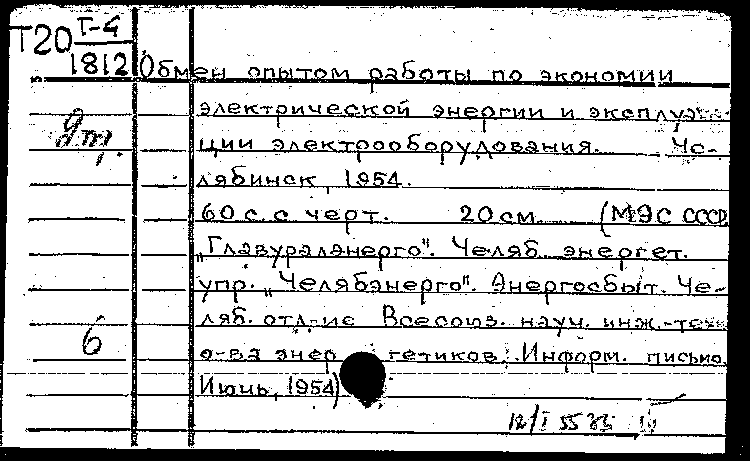 Т20 Т-4
1812 Обмен опытом работы по экономии
электрической энергии и эксплуата-
ции электрооборудования. Че-
лябинск, 1954.
60 с. с черт. 20 см. (МЭС СССР
„Главуралэнерго". Челяб. энергет.
упр. „Челябэнерго". Энергосбыт. Че-
ляб. отд-ие Всесоюз. науч. инж.-техн.
6
о-ва энергетиков. Информ. письмо.
Июнь, 1954)